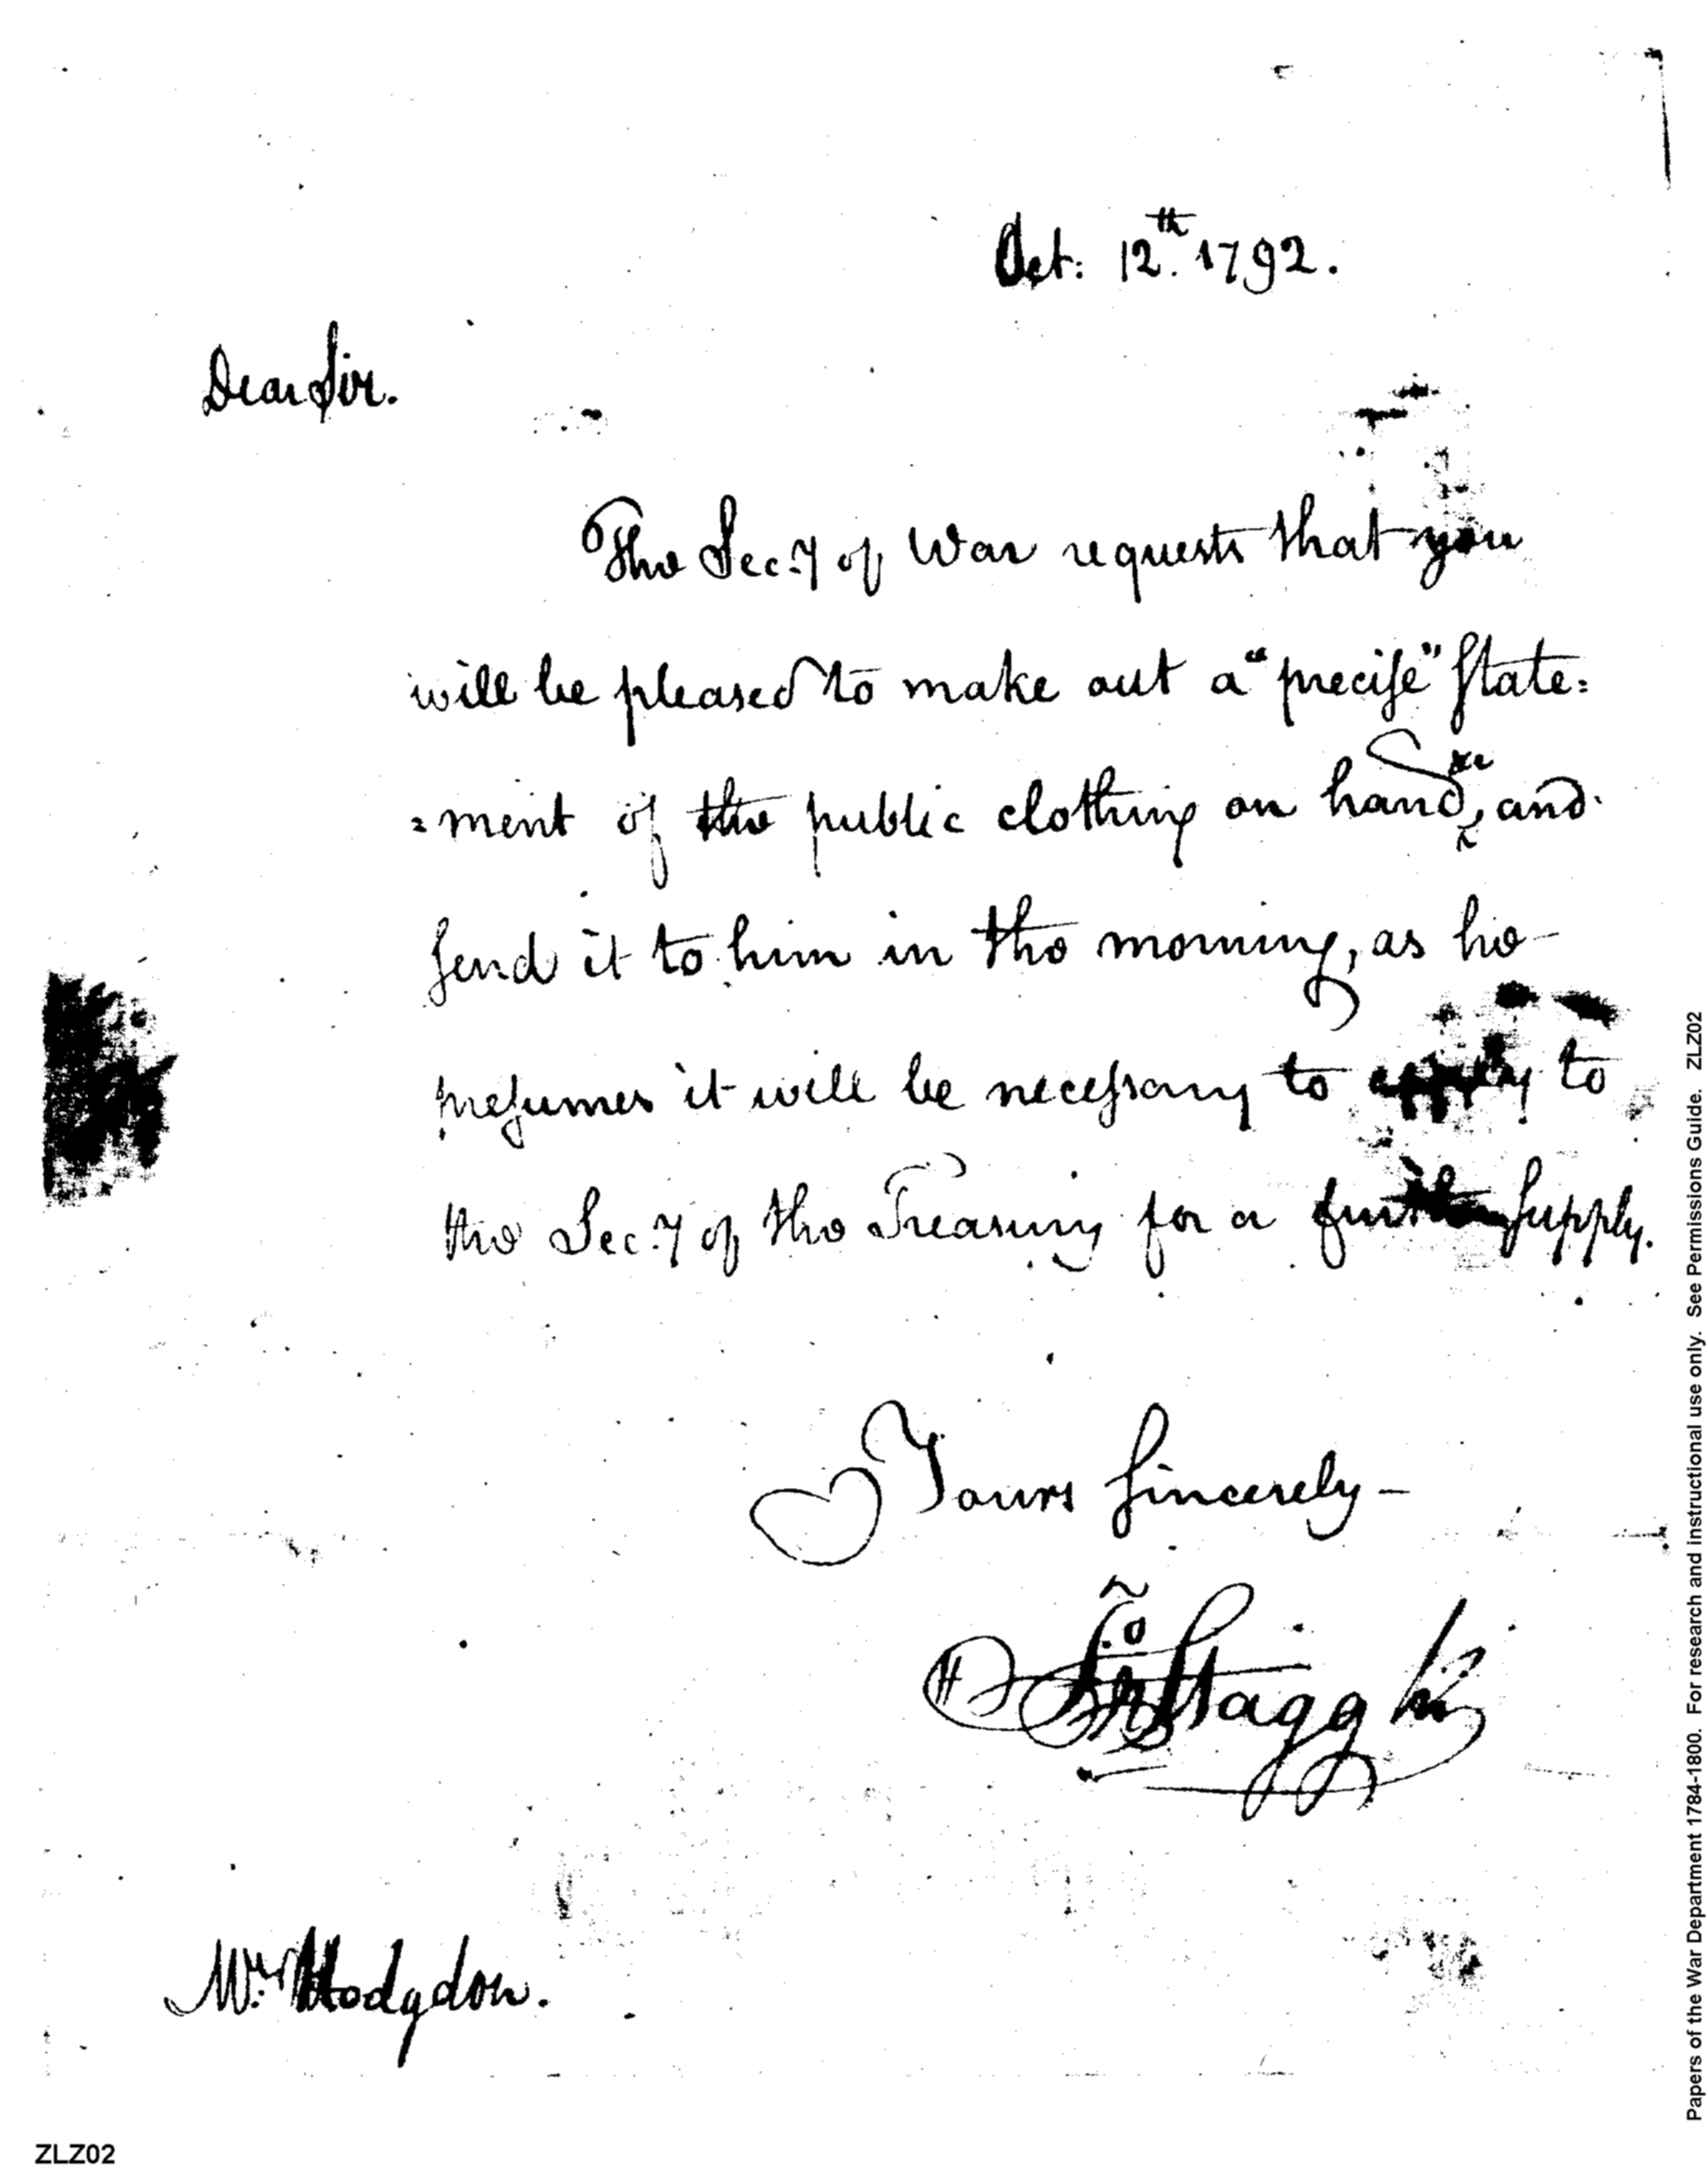 Oct: 12.th 1792.
Dear Sir.
The Sec:y of War requests that you
will be pleased to make out a "precise" State=
=ment of the public clothing on hand, and
send it to him in the morning, as he
presumes it will be necessary to apply to
the Sec:y of the Treasury for a further Supply.
Yours sincerely -
Jno Stagg Jr
Mr. Hodgdon.
Papers of the War Department 1784-1800. For research and instructional use only. See Permissions Guide. ZLZ02
ZLZ02